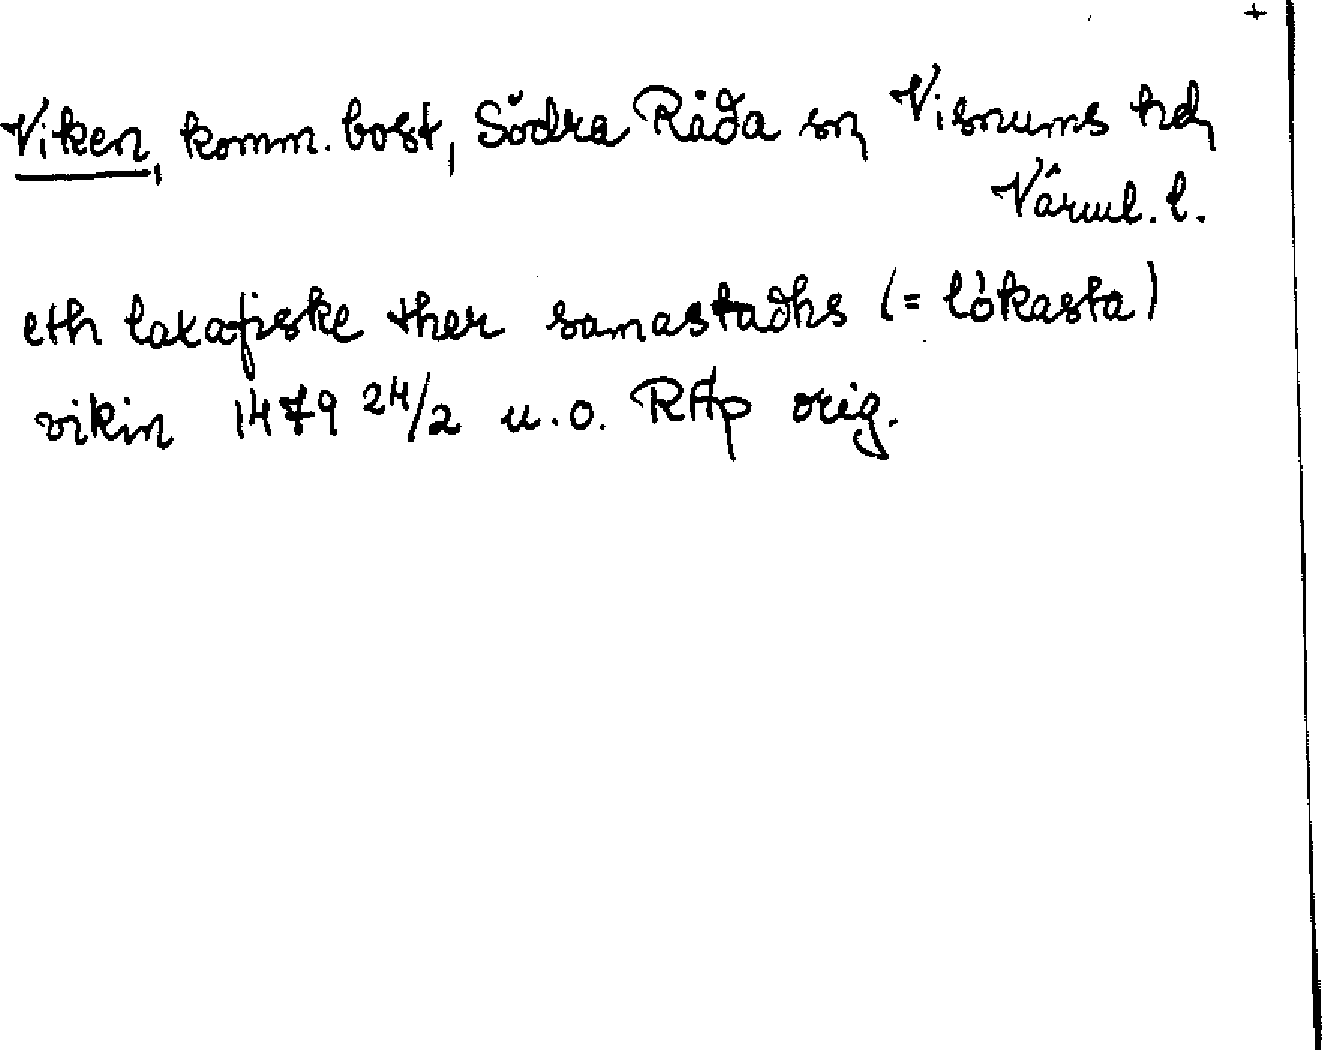 +
Viken, komm. bost, Södra Råda sn Visnums hd
Värml. l.
eth laxafiske ther samastadhs (= lökasta)
vikin 1479 24/2 u.o. RAp orig.